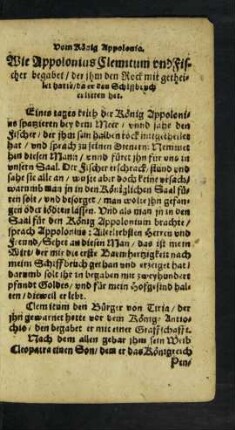 Vom König Appolonio.
Wie Appolonius Clemitum vnd Fis-
cher begabet / der jhm den Rock mit getheis-
let hatte / da er den Schiffbruch
erlitten hat.
Eines tages ersch der König Appoloni-
us spatzieren bey dem Meer / vnnd sahe den
Fischer / der jhm sein halben rock mitgetheilet
hat / vnd sprach zu seinen Dienern: Nemmet
hin diesen Mann / vnnd füret jhn für vns in
vnsern Saal. Der Fischer erschrack / stund vnd
sahe sie alle an / wuste aber doch keine vrsach /
warumb man jn in den Königlichen Saal füh
ren solt / vnd besorget / man wolte jhn gefan-
gen oder tödten lassen. Vnd als man jn in den
Saal für den König Appolonium brachte /
sprach Appolonius: Allerliebsten Herren vnd
Freund / Sehet an diesen Man / das ist mein
Wirt / der mir die erste Barmhertzigkeit nach
mein Schiffbruch gethan vnd erzeiget hat /
darumb solt jhr in begaben mit zweyhundert
pfundt Goldes / vnd für mein Hofgesind hal-
ten / dieweil er lebt.
Clemitum den Bürger von Tiria / der
jhn gewarnet hette vor dem König Antio-
chio / den begabet er mit einer Graffschafft.
Nach dem allen gebar jhm sein Weib
Cleopatra einen Son / dem er das Königreich
Pen /